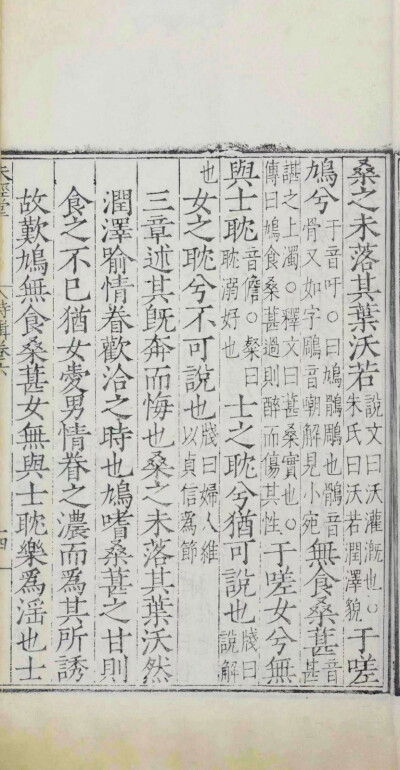 桑之未落其葉沃若說文曰沃灌漑也○朱氏曰沃若潤澤貌于嗟
鳩兮于音吁○曰鳩鶻鵰也鶻音骨又如字鵰音嘲解見小宛無食桑葚音葚
諶之上濁○釋文曰葚桑實也○傳曰鳩食桑葚過則醉而傷其性于嗟女兮無
與士耽音儋○粲曰耽溺好也士之耽兮猶可說也牋曰說解
也女之耽兮不可說也牋曰婦人維以貞信爲節
三章述其旣奔而悔也桑之未落其葉沃然
潤澤喻情眷歡洽之時也鳩嗜桑葚之甘則
食之不已猶女愛男情眷之濃而爲其所誘
故歎鳩無食桑葚女無與士耽樂爲淫也士